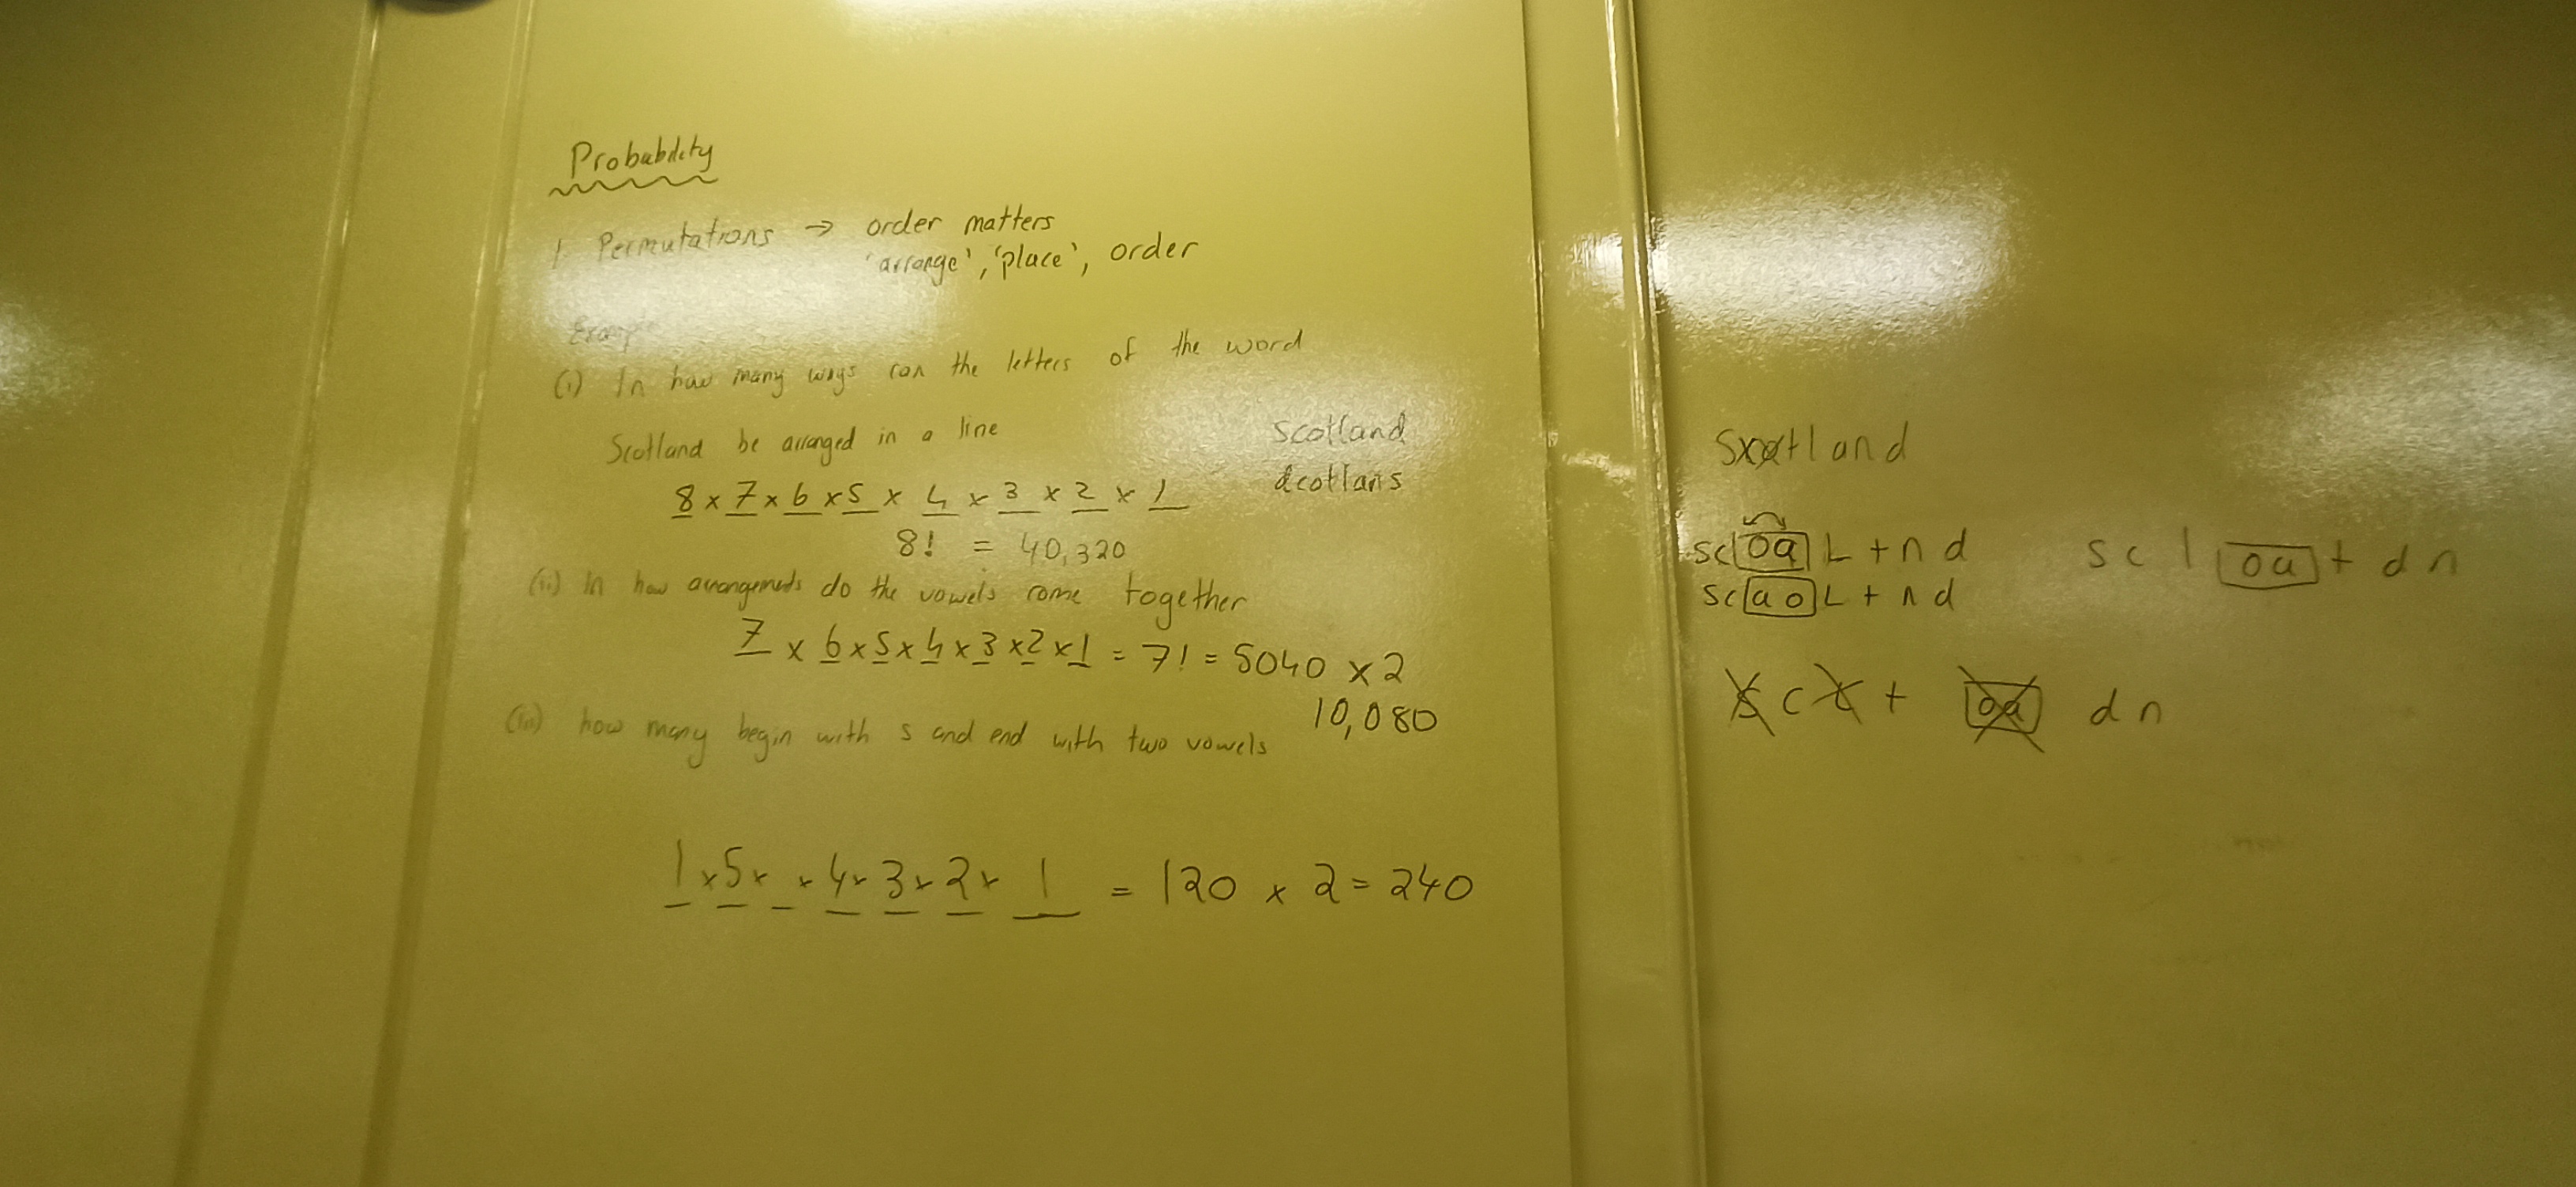 Probability
1. Permutations → order matters
'arrange', 'place', order
Example
(i) In how many ways can the letters of the word
Scotland be arranged in a line
8 x 7 x 6 x 5 x 4 x 3 x 2 x 1
8! = 40,320
scotland
dcotlans
(ii) In how arrangements do the vowels come together
7 x 6 x 5 x 4 x 3 x 2 x 1 = 7! = 5040 x 2
10,080
(iii) how many begin with s and end with two vowels
1 x 5 x x 4 x 3 x 2 x 1 = 120 x 2 = 240
tland
sc oa L t n d
sc a o L t n d
s c l oa t d n
s c t oa d n